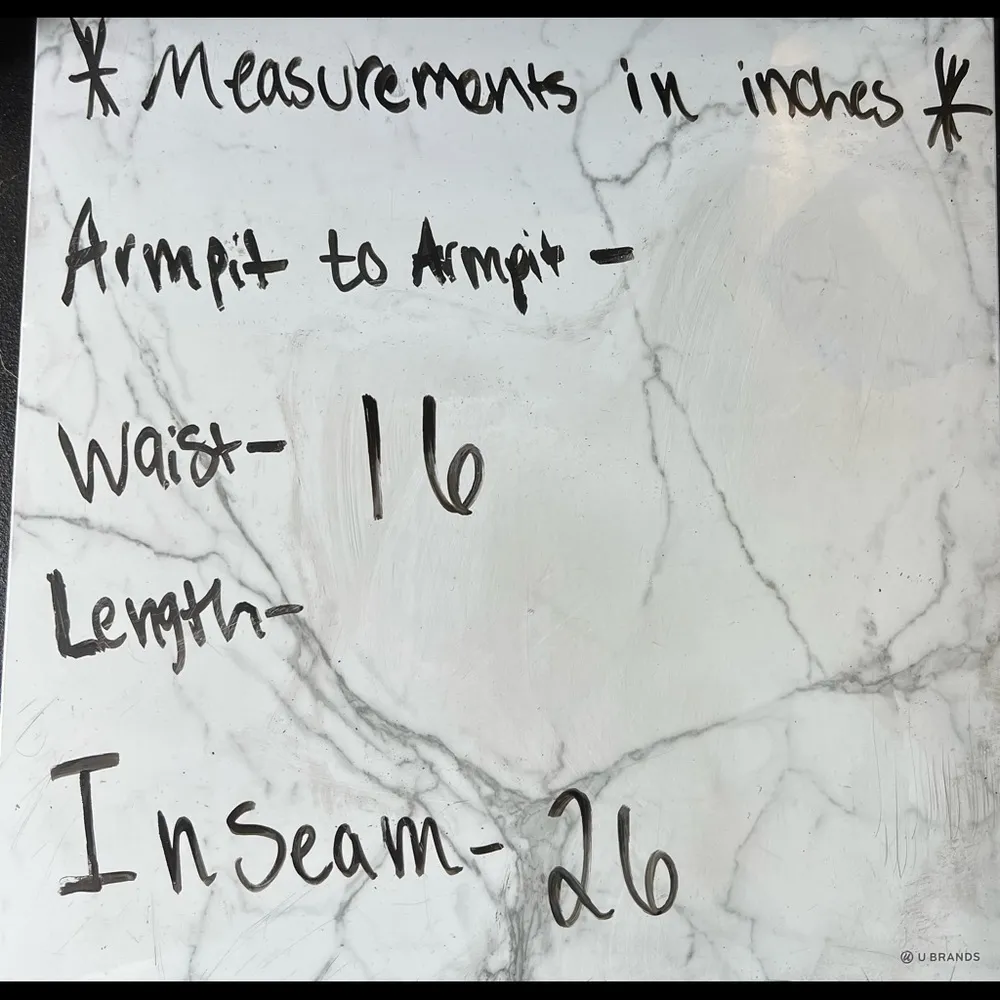 * Measurements in inches *
Armpit to Armpit -
Waist- 16
Length-
Inseam- 26
U BRANDS